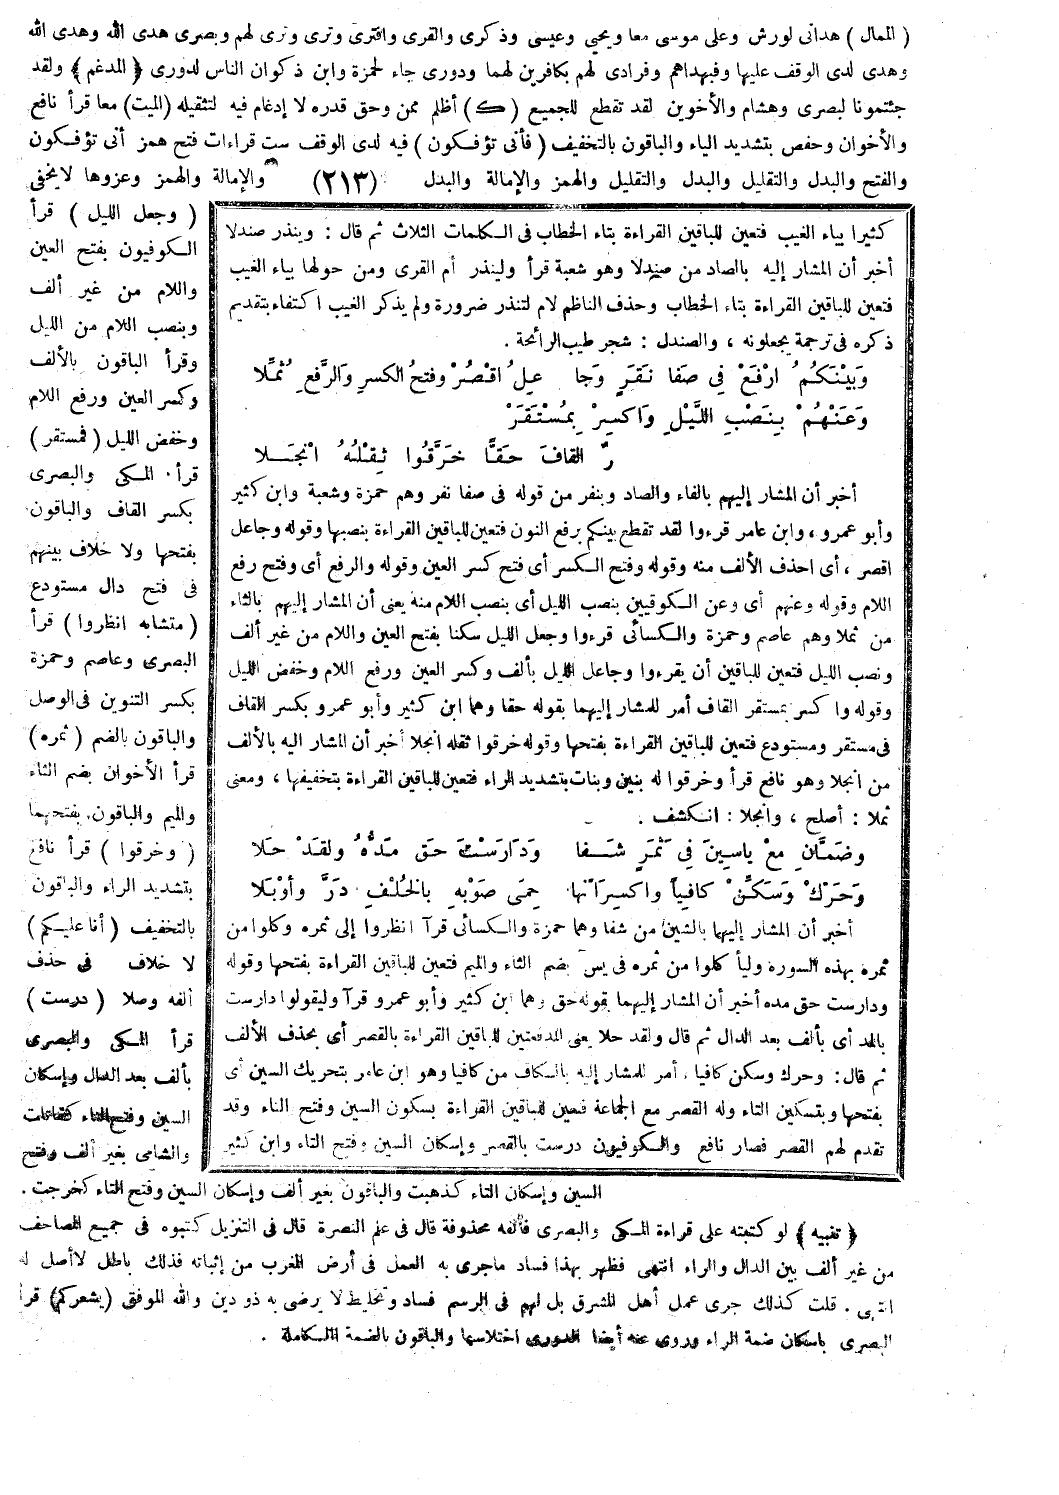 ( الممال ) هدانى لورش وعلى موسى معا ويحيى وعيسى وذكرى والقرى وافترى وترى وترى لهم وبصرى هدى الله وهدى الله
وهدى لدى الوقف عليها وفبهداهم وفرادى لهم بكافرين لهما ودورى جاء لحمزة وابن ذكوان الناس لدورى ﴿ المدغم ﴾ ولقد
جئتمونا لبصرى وهشام والأخوين لقد تقطع للجميع ( ك ) أظلم ممن وحق قدره لا إدغام فيه لتثقيله (الميت) معا قرأ نافع
والأخوان وحفص بتشديد الياء والباقون بالتخفيف ( فأنى تؤفكون ) فيه لدى الوقف ست قراءات فتح همز أنى تؤفكون
والفتح والبدل والتقليل والبدل والتقليل والهمز والإمالة والبدل (٢١٣) والإمالة والهمز وعزوها لايخفى
كثيرا بياء الغيب فتعين للباقين القراءة بتاء الخطاب فى الكلمات الثلاث ثم قال : وينذر صندلا
أخبر أن المشار إليه بالصاد من صندلا وهو شعبة قرأ ولينذر أم القرى ومن حولها بياء الغيب
فتعين للباقين القراءة بتاء الخطاب وحذف الناظم لام لتنذر ضرورة ولم يذكر الغيب اكتفاء بتقديم
ذكره فى ترجمة يجعلونه ، والصندل : شجر طيب الرائحة .
وَبَيْنَكُمُ ارْفَعْ فِي صَفَا نَفَرٍ وَجَا عِلُ اقْصُرْ وَفتحُ الكسرِ وَالرَّفعِ ثُمِّلا
وَعَنْهُمْ بِنَصْبِ اللَّيْلِ وَاكسِرْ بِمُسْتَقَرْ
رّ القافَ حَقًّا خَرَّقُوا ثِقْلُهُ انْجَلا
أخبر أن المشار إليهم بالفاء والصاد وبنفر من قوله فى صفا نفر وهم حمزة وشعبة وابن كثير
وأبو عمرو ، وابن عامر قرءوا لقد تقطع بينكم برفع النون فتعين للباقين القراءة بنصبها وقوله وجاعل
اقصر ، أى احذف الألف منه وقوله وفتح الكسر أى فتح كسر العين وقوله والرفع أى وفتح رفع
اللام وقوله وعنهم أى وعن الكوفيين بنصب الليل أى بنصب اللام منه يعنى أن المشار إليهم بالثاء
من ثملا وهم عاصم وحمزة والكسائى قرءوا وجعل الليل سكنا بفتح العين واللام من غير ألف
ونصب الليل فتعين للباقين أن يقرءوا وجاعل الليل بألف وكسر العين ورفع اللام وخفض الليل
وقوله واكسر بمستقر القاف أمر للمشار إليهما بقوله حقا وهما ابن كثير وأبو عمرو بكسر القاف
فى مستقر ومستودع فتعين للباقين القراءة بفتحها وقوله خرقوا ثقله انجلا أخبر أن المشار اليه بالألف
من انجلا وهو نافع قرأ وخرقوا له بنين وبنات بتشديد الراء فتعين للباقين القراءة بتخفيفها ، ومعنى
ثملا : أصلح ، وانجلا : انكشف .
وضَمَّانِ معْ ياسِينَ فِي ثَمَرٍ شَفَا وَدَارَسْتَ حَق مَدُّهُ ولقَدْ حَلا
وَحَرِّكْ وَسَكِّنْ كافياً واكسِرَ انَّها حِمَى صَوْبِهِ بالخُلْفِ دَرَّ وأوْبَلا
أخبر أن المشار إليهما بالشين من شفا وهما حمزة والكسائى قرآ انظروا إلى ثمره وكلوا من
ثمره بهذه السورة وليأكلوا من ثمره فى يس بضم الثاء والميم فتعين للباقين القراءة بفتحها وقوله
ودارست حق مده أخبر أن المشار إليهما بقوله حق وهما ابن كثير وأبو عمرو قرآ وليقولوا دارست
بالمد أى بألف بعد الدال ثم قال ولقد حلا يعنى المد فتعين للباقين القراءة بالقصر أى بحذف الألف
ثم قال : وحرك وسكن كافيا ، أمر للمشار إليه بالكاف من كافيا وهو ابن عامر بتحريك السين أى
بفتحها وبتسكين التاء وله القصر مع الجماعة فتعين للباقين القراءة بسكون السين وفتح التاء وقد
تقدم لهم القصر فصار نافع والكوفيون درست بالقصر وإسكان السين وفتح التاء وابن كثير
( وجعل الليل ) قرأ
الكوفيون بفتح العين
واللام من غير ألف
وبنصب اللام من الليل
وقرأ الباقون بالألف
وكسر العين ورفع اللام
وخفض الليل ( فمستقر )
قرأ المكى والبصرى
بكسر القاف والباقون
بفتحها ولا خلاف بينهم
فى فتح دال مستودع
( متشابه انظروا ) قرأ
البصرى وعاصم وحمزة
بكسر التنوين فى الوصل
والباقون بالضم ( ثمره )
قرأ الأخوان بضم الثاء
والميم والباقون بفتحهما
( وخرقوا ) قرأ نافع
بتشديد الراء والباقون
بالتخفيف ( أنا عليكم )
لا خلاف فى حذف
ألفه وصلا ( درست )
قرأ المكى والبصرى
بألف بعد الدال وإسكان
السين وفتح التاء كقاتلت
والشامى بغير ألف وفتح
السين وإسكان التاء كذهبت والباقون بغير ألف وإسكان السين وفتح التاء كخرجت .
﴿ تنبيه ﴾ لو كتبته على قراءة المكى والبصرى فألفه محذوفة قال فى علم النصرة قال فى التنزيل كتبوه فى جميع المصاحف
من غير ألف بين الدال والراء انتهى فظهر بهذا فساد ماجرى به العمل فى أرض المغرب من إثباته فذلك باطل لاأصل له
انتهى . قلت كذلك جرى عمل أهل المشرق بل لهم فى الرسم فساد وتخليط لا يرضى به ذو دين والله الموفق (يشعركم) قرأ
البصرى باسكان ضمة الراء وروى عنه أيضا الدورى اختلاسها والباقون بالضمة الكاملة .